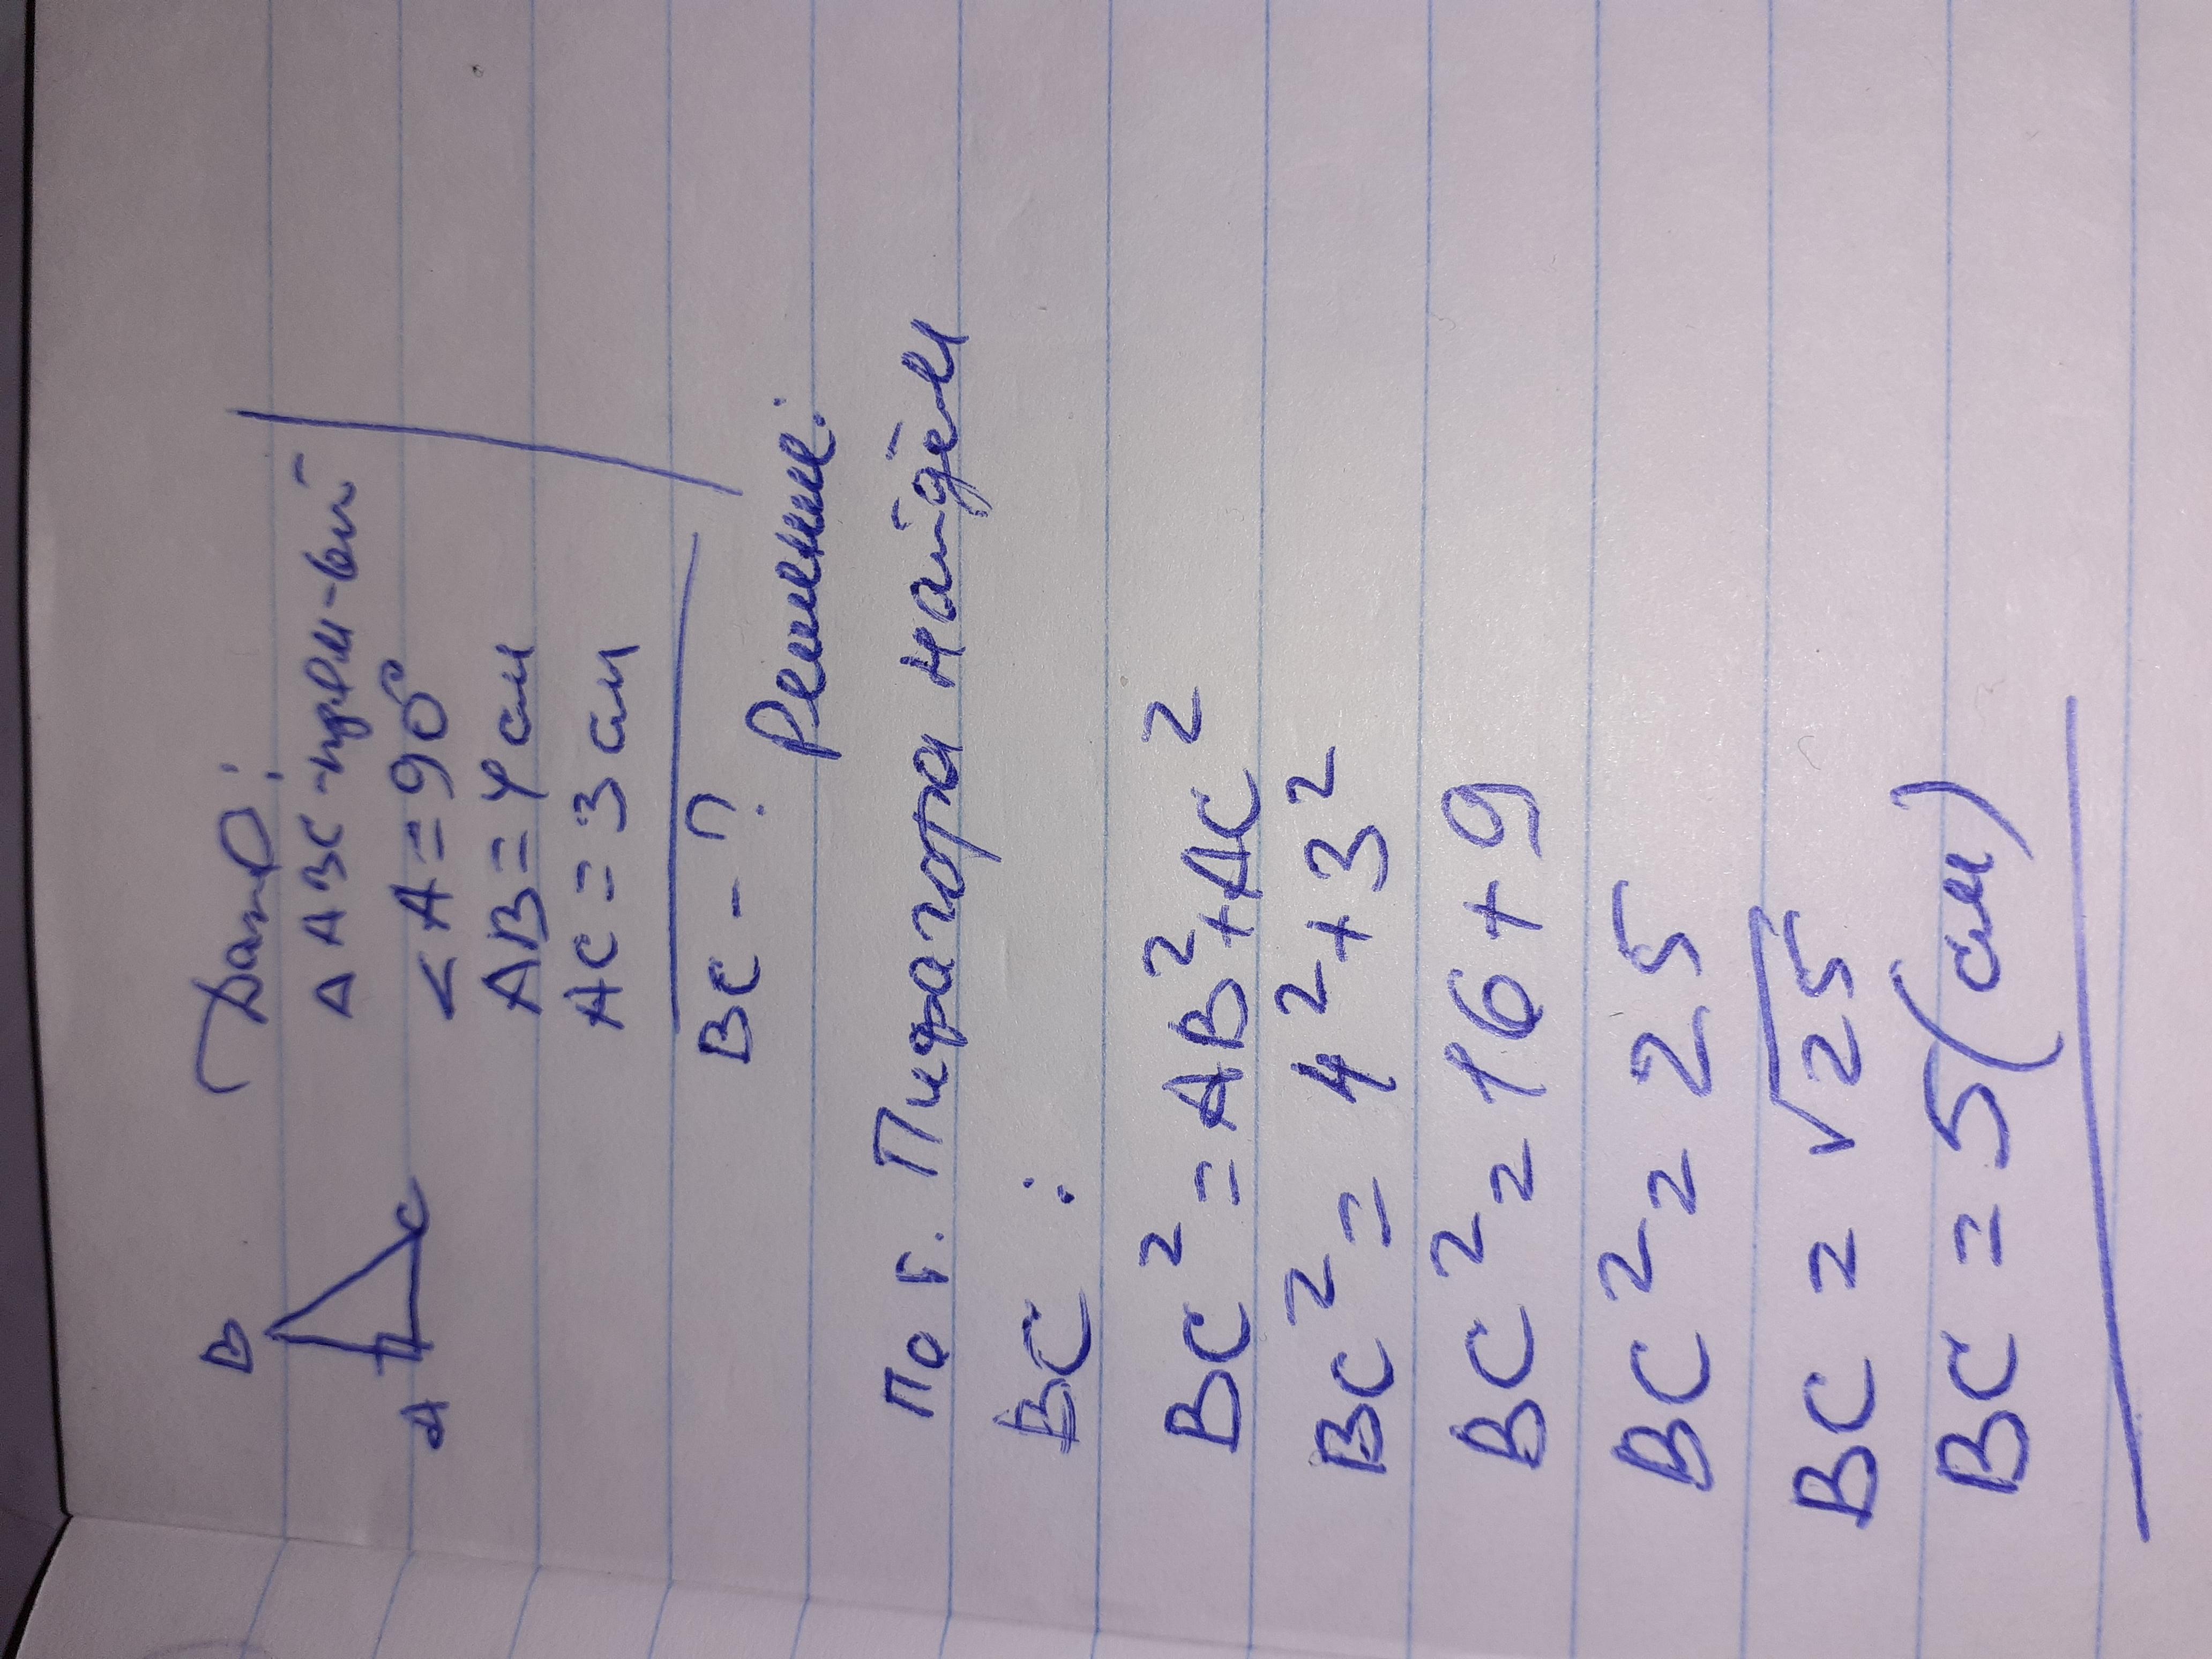 B
A
C
Дано:
△ ABC - прям-ый
< A = 90°
AB = 4 см
AC = 3 см
BC - ?
Решение:
По т. Пифагора найдём
BC :
BC² = AB² + AC²
BC² = 4² + 3²
BC² = 16 + 9
BC² = 25
BC = √25
BC = 5 (см)